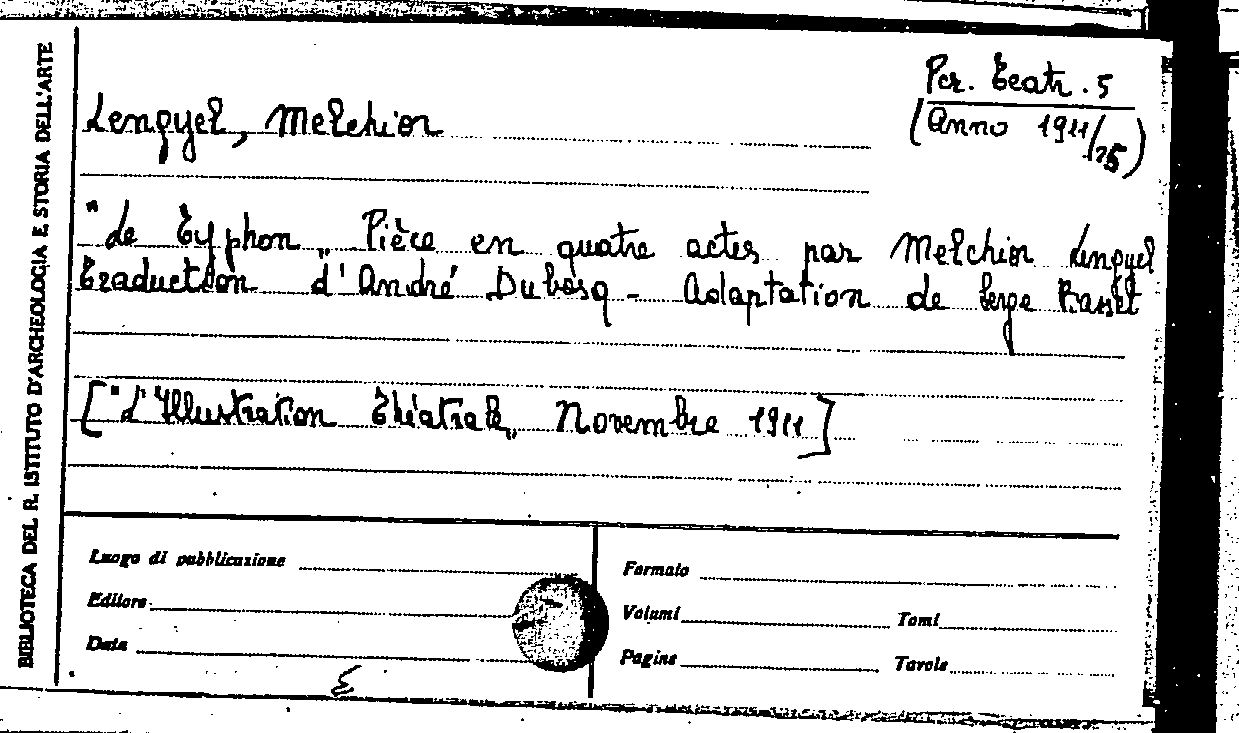 BIBLIOTECA DEL R. ISTITUTO D'ARCHEOLOGIA E STORIA DELL'ARTE
Per. Teatr. 5
(Anno 1911/25)
Lengyel, Melchior
"Le Typhon„ Pièce en quatre actes par Melchior Lengyel
Traduction d'André Dubosq - Adaptation de Serge Basset
["L'Illustration Théatrale„ Novembre 1911]
Luogo di pubblicazione
Editore
Data
Formato
Volumi Tomi
Pagine Tavole